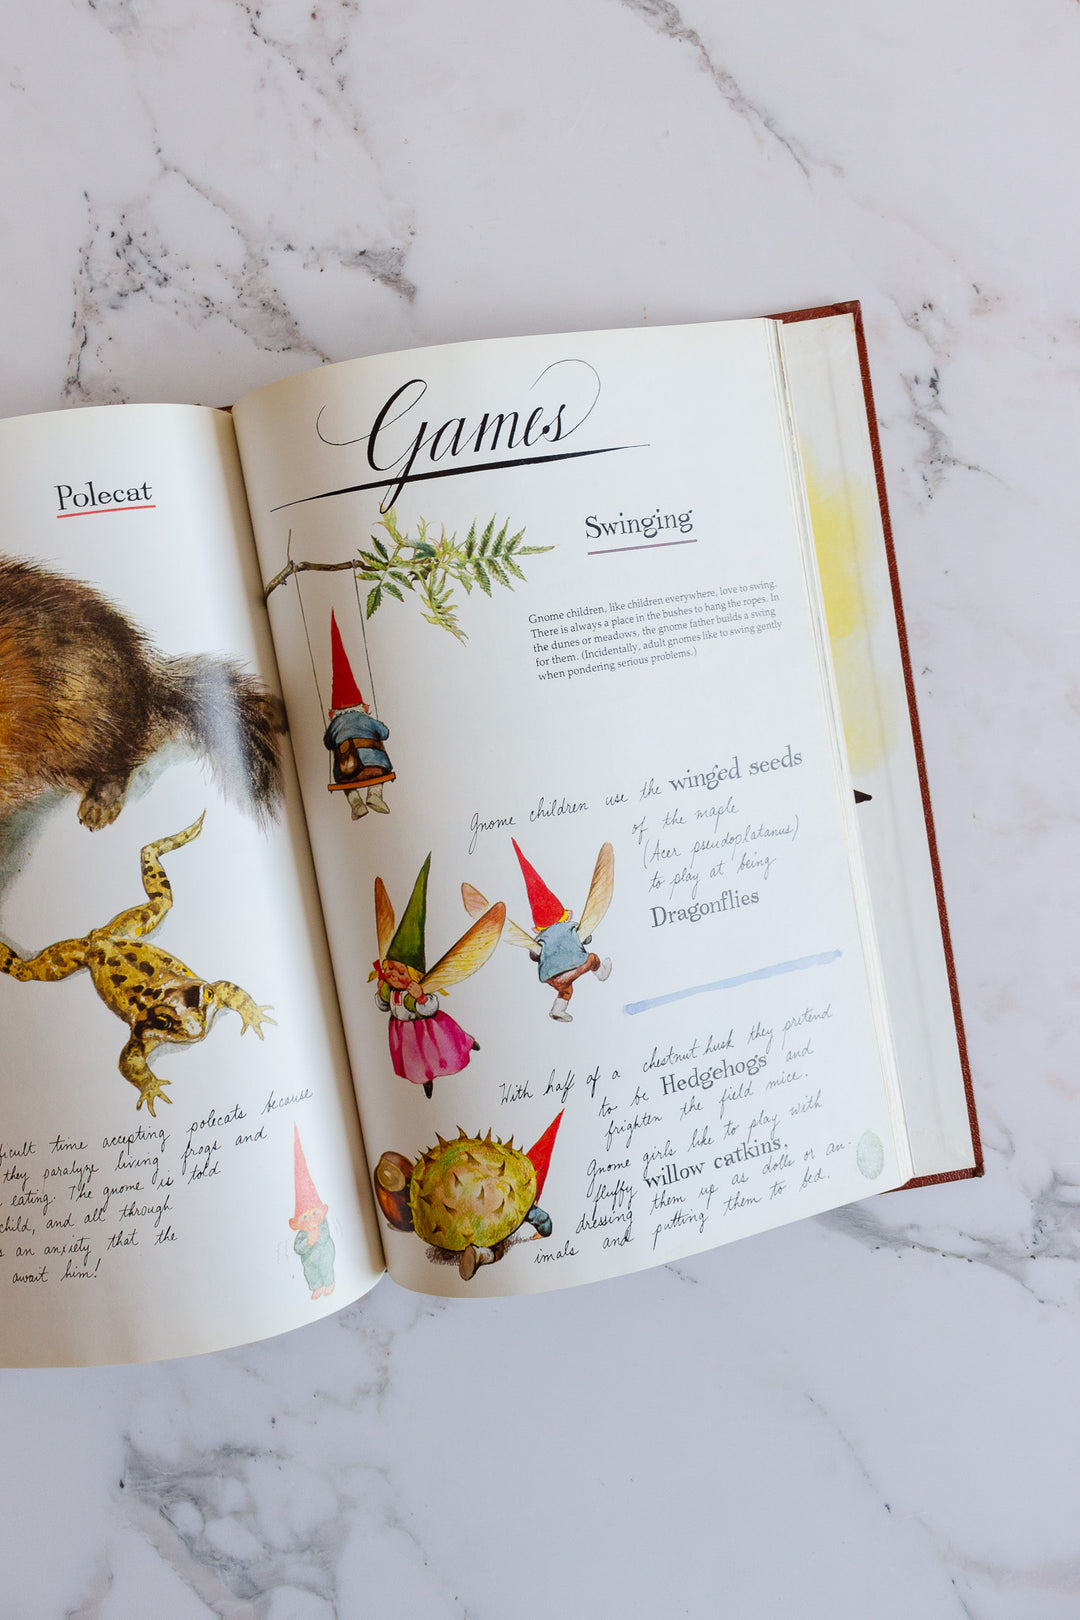 Polecat
ficult time accepting polecats because
they paralyze living frogs and
eating. The gnome is told
child, and all through
s an anxiety that the
await him!
Games
Swinging
Gnome children, like children everywhere, love to swing.
There is always a place in the bushes to hang the ropes. In
the dunes or meadows, the gnome father builds a swing
for them. (Incidentally, adult gnomes like to swing gently
when pondering serious problems.)
Gnome children use the winged seeds
of the maple
(Acer pseudoplatanus)
to play at being
Dragonflies
With half of a chestnut husk they pretend
to be Hedgehogs and
frighten the field mice.
Gnome girls like to play with
fluffy willow catkins,
dressing them up as dolls or an-
imals and putting them to bed.